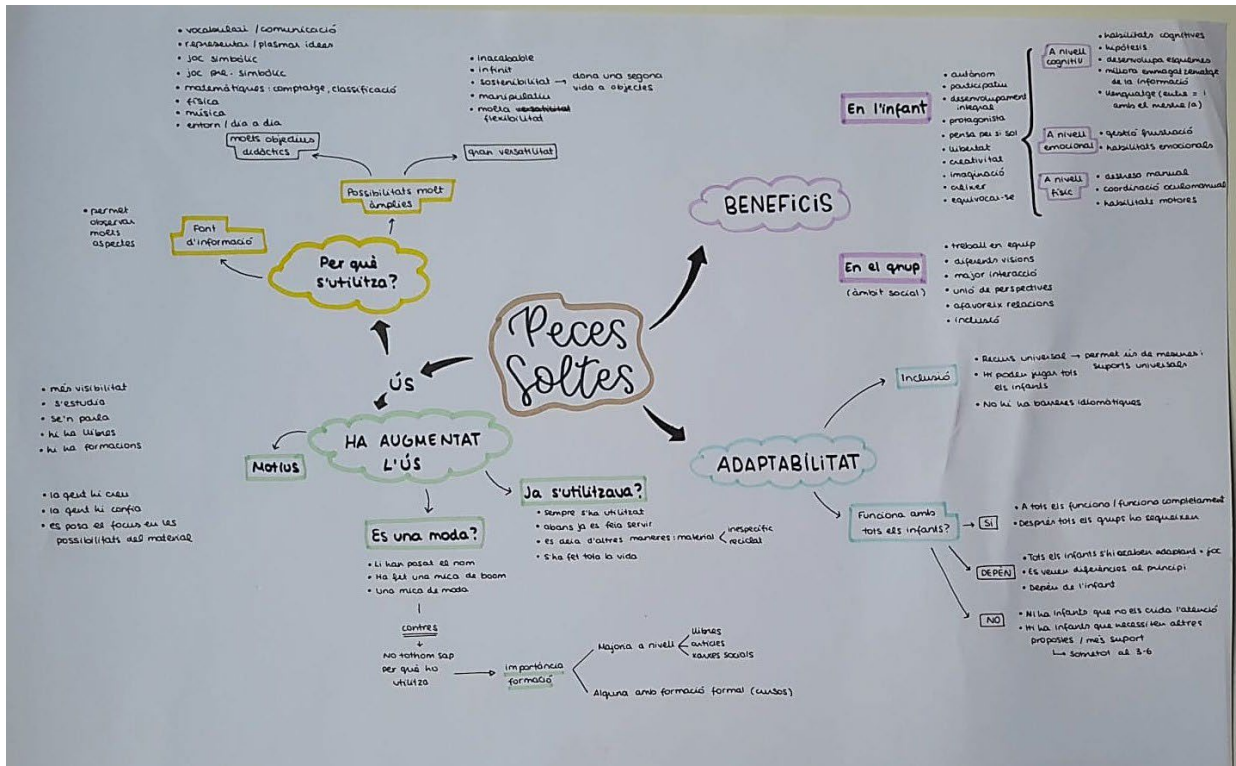 Peces
Soltes
ÚS
Per què
s'utilitza?
Font
d'informació
• permet
observar
molts
aspectes
Possibilitats molt
àmplies
molts objectius
didàctics
• vocabulari / comunicació
• representar / plasmar idees
• joc simbòlic
• joc pre-simbòlic
• matemàtiques: comptatge, classificació
• física
• música
• entorn / dia a dia
gran versatilitat
• inacabable
• infinit
• sostenibilitat → dona una segona
vida a objectes
• manipulatiu
• molta versatilitat
flexibilitat
HA AUGMENTAT
L'ÚS
Motius
• més visibilitat
• s'estudia
• se'n parla
• hi ha llibres
• hi ha formacions
• la gent hi creu
• la gent hi confia
• es posa el focus en les
possibilitats del material
Es una moda?
• Li han posat el nom
• Ha fet una mica de boom
• Una mica de moda
contres
No tothom sap
per què ho
utilitza
importància
formació
Majoria a nivell
llibres
articles
xarxes socials
Alguna amb formació formal (cursos)
Ja s'utilitzava?
• Sempre s'ha utilitzat
• abans ja es feia servir
• es deia d'altres maneres: material
inespecífic
reciclat
• S'ha fet tota la vida
BENEFICIS
En l'infant
• autònom
• participatiu
• desenvolupament
integral
• protagonista
• pensa per si sol
• llibertat
• creativitat
• imaginació
• créixer
• equivocar-se
A nivell
cognitiu
• habilitats cognitives
• hipòtesis
• desenvolupa esquemes
• millora emmagatzematge
de la informació
• llenguatge (entre = i
amb el mestre/a)
A nivell
emocional
• gestió frustració
• habilitats emocionals
A nivell
físic
• destresa manual
• coordinació oculomanual
• habilitats motores
En el grup
(àmbit social)
• treball en equip
• diferents visions
• major interacció
• unió de perspectives
• afavoreix relacions
• inclusió
ADAPTABILITAT
Inclusió
• Recurs universal → permet ús de mesures i
suports universals
• Hi poden jugar tots
els infants
• No hi ha barreres idiomàtiques
Funciona amb
tots els infants?
SI
• A tots els funciona / funciona completament
• Després tots els grups ho segueixen
DEPÈN
• Tots els infants s'hi acaben adaptant + joc
• Es veuen diferències al principi
• Depèn de l'infant
NO
• Hi ha infants que no els crida l'atenció
• Hi ha infants que necessiten altres
propostes / més suport
↳ sobretot al 3-6